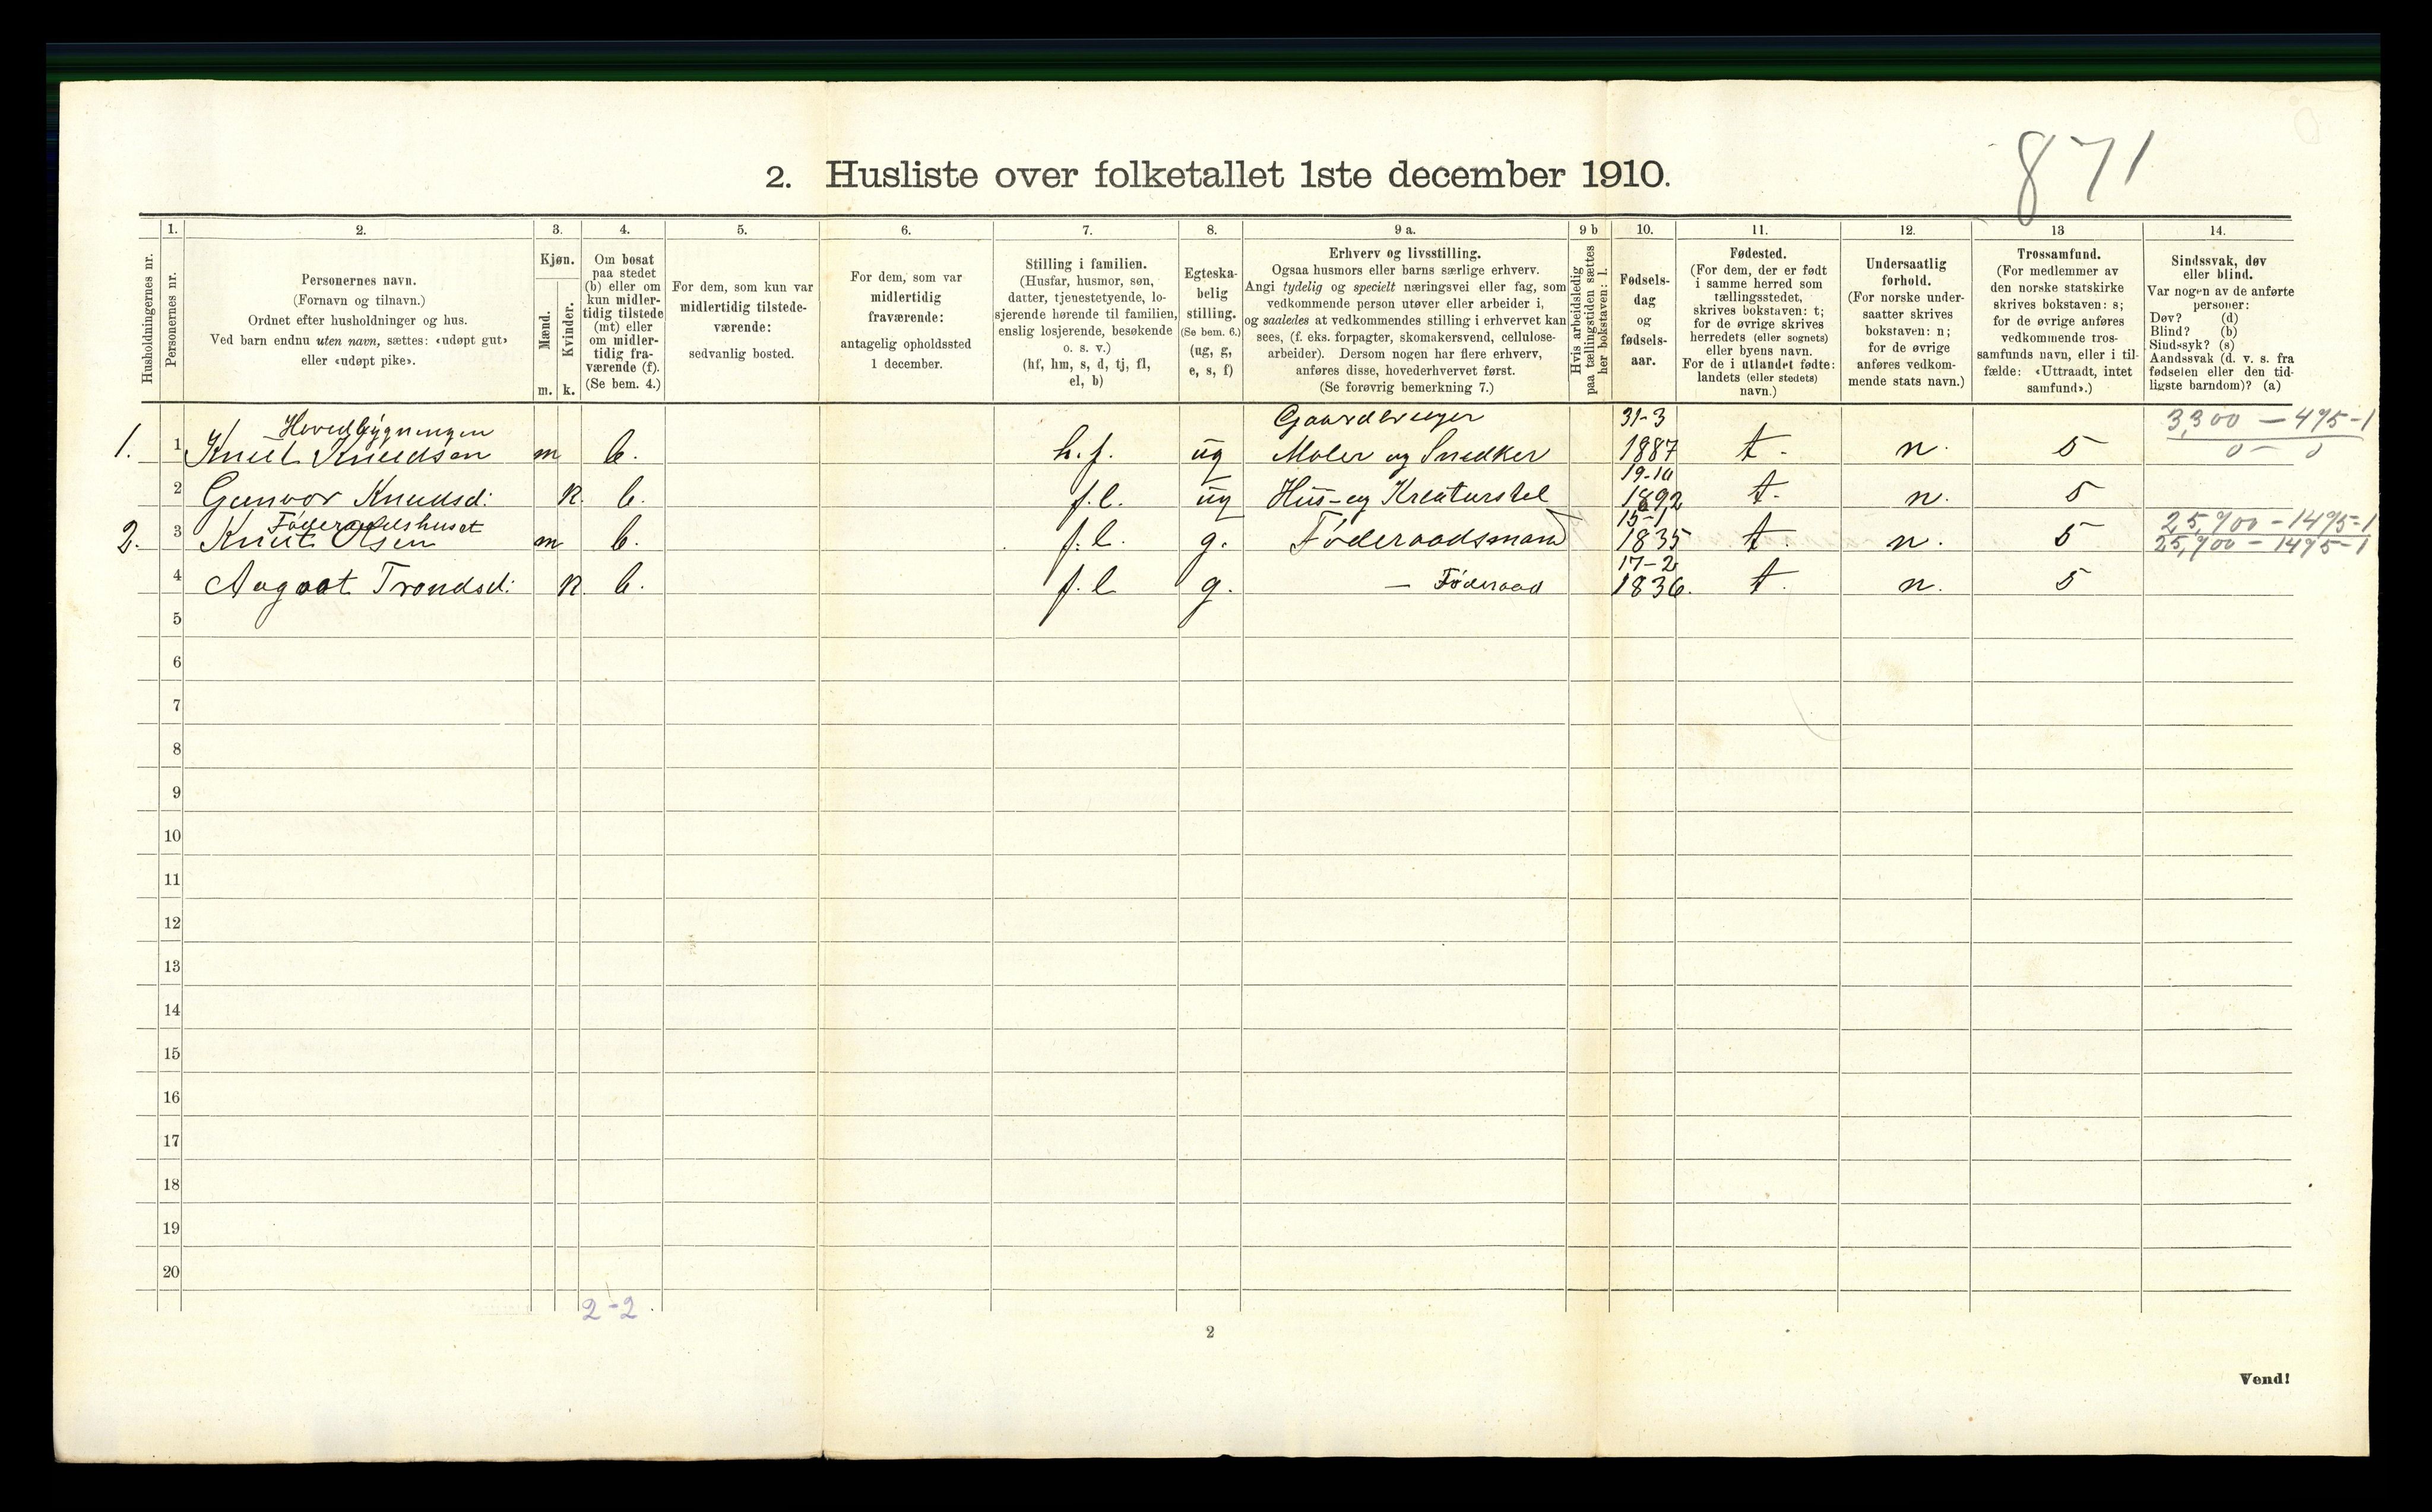 871
2. Husliste over folketallet 1ste december 1910.
Husholdningernes nr.
1.
Personernes nr.
2.
Personernes navn.
(Fornavn og tilnavn.)
Ordnet efter husholdninger og hus.
Ved barn endnu uten navn, sættes: «udøpt gut»
eller «udøpt pike».
3.
Kjøn.
Mænd.
m.
Kvinder.
k.
4.
Om bosat
paa stedet
(b) eller om
kun midler-
tidig tilstede
(mt) eller
om midler-
tidig fra-
værende (f).
(Se bem. 4.)
5.
For dem, som kun var
midlertidig tilstede-
værende:
sedvanlig bosted.
6.
For dem, som var
midlertidig
fraværende:
antagelig opholdssted
1 december.
7.
Stilling i familien.
(Husfar, husmor, søn,
datter, tjenestetyende, lo-
sjerende hørende til familien,
enslig losjerende, besøkende
o. s. v.)
(hf, hm, s, d, tj, fl,
el, b)
8.
Egteska-
belig
stilling.
(Se bem. 6.)
(ug, g,
e, s, f)
9 a.
Erhverv og livsstilling.
Ogsaa husmors eller barns særlige erhverv.
Angi tydelig og specielt næringsvei eller fag, som
vedkommende person utøver eller arbeider i,
og saaledes at vedkommendes stilling i erhvervet kan
sees, (f. eks. forpagter, skomakersvend, cellulose-
arbeider). Dersom nogen har flere erhverv,
anføres disse, hovederhvervet først.
(Se forøvrig bemerkning 7.)
9 b
Hvis arbeidsledig
paa tællingstiden sættes
her bokstaven: l.
10.
Fødsels-
dag
og
fødsels-
aar.
11.
Fødested.
(For dem, der er født
i samme herred som
tællingsstedet,
skrives bokstaven: t;
for de øvrige skrives
herredets (eller sognets)
eller byens navn.
For de i utlandet fødte:
landets (eller stedets)
navn.)
12.
Undersaatlig
forhold.
(For norske under-
saatter skrives
bokstaven: n;
for de øvrige
anføres vedkom-
mende stats navn.)
13
Trossamfund.
(For medlemmer av
den norske statskirke
skrives bokstaven: s;
for de øvrige anføres
vedkommende tros-
samfunds navn, eller i til-
fælde: «Uttraadt, intet
samfund».)
14.
Sindssvak, døv
eller blind.
Var nogen av de anførte
personer:
Døv? (d)
Blind? (b)
Sindssyk? (s)
Aandssvak (d. v. s. fra
fødselen eller den tid-
ligste barndom)? (a)
Hovedbygningen Gaardbruger 31-3 3,300 — 495-1
1. 1 Knut Knudsen m b. h.f. ug Maler og Snedker 1887 t. n. s 0 — 0
19-10
2 Gunvor Knudsd: k. b. f.l. ug Hus- og Kreaturstel 1892 t. n. s
Föderaadshuset 15-1 25,900 - 1495-1
2. 3 Knut Olsen m b. f.l. g. Föderaadsmand 1835 t. n. s 25,900 - 1495-1
17-2
4 Aagaat Trondsd: k. b. f.l g. — Föderaad 1836. t. n. s
5
6
7
8
9
10
11
12
13
14
15
16
17
18
19
20
2-2.
2
Vend!